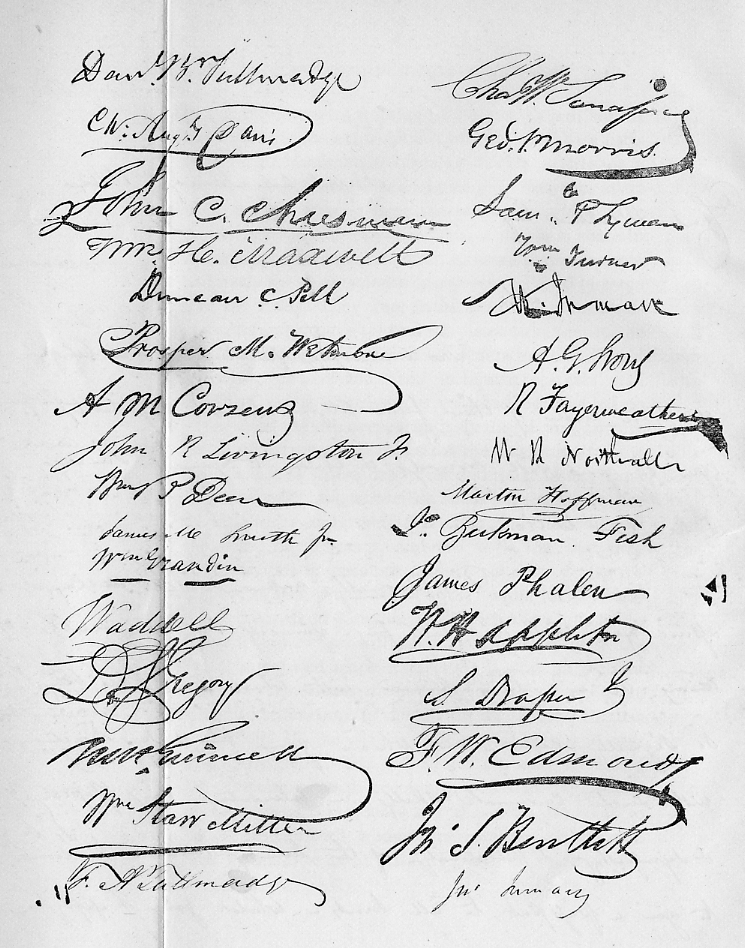 Danl. B. Tallmadge
Wm. Augs Davis
John C. Cheesman
Wm H. Maxwell
Duncan C. Pell
Prosper M. Wetmore
A M Cozzens
John R Livingston Jr
Wm B Deen
James M Smith Jr
Wm Grandin
Waddell
D S Gregory
Grinnell
Wm Starr Miller
F. A. Tallmadge
Chas W. Sandford
Geo. P. Morris.
Saml. P Lyman
Wm Turner
W. Inman
A. G.
R Fayerweather
W H
Martin Hoffman
Beekman Fish
James Phalen
W. H Appleton
S. Draper Jr
F. W. Edmonds
Jno S. Bartlett
Jno Inman